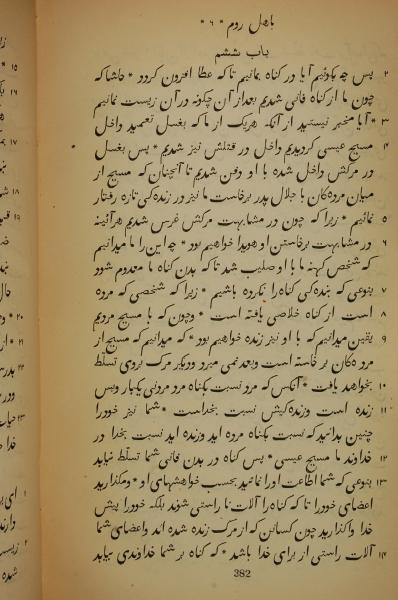 باهل روم * ۶ *
باب ششم
۲ پس چه بگوئیم آیا در گناه بمانیم تا که عطا افزون گردد * حاشا که
چون ما از گناه فانی شدیم بعد از آن چگونه در آن زیست نمائیم
۳ * آیا مخبر نیستید از آنکه هر یک از ما که بغسل تعمید داخل
۴ مسیح عیسی گردیدیم داخل در قتلش نیز شدیم * پس بغسل
در مرگش داخل شده با او دفن شدیم تا آنچنان که مسیح از
میان مردگان با جلال پدر برخاست ما نیز در زندگی تازه رفتار
۵ نمائیم * زیرا که چون در مشابهت مرگش غرس شدیم هرآئینه
۶ در مشابهت برخاستن او هویدا خواهیم بود * چه این را میدانیم
که شخص کهنه ما با او صلیب شد تا که بدن گناه ما معدوم شود
۷ بنوعی که بندگی گناه را نکرده باشیم * زیرا که شخصی که مرده
۸ است از گناه خلاصی یافته است * و چون که با مسیح مردیم
۹ یقین میدانیم که با او نیز زنده خواهیم بود * که میدانیم که مسیح از
مردگان برخاسته است و بعد نمی میرد و دیگر مرگ بر وی تسلّط
۱۰ نخواهد یافت * آنکس که مرد نسبت بگناه مرد مردنی یکبار و پس
۱۱ زنده است و زندگیش نسبت بخداست * شما نیز خود را
چنین بدانید که نسبت بگناه مرده اید و زنده اید نسبت بخدا در
۱۲ خداوند ما مسیح عیسی * پس گناه در بدن فانی شما تسلّط نیابد
۱۳ بنوعی که شما اطاعت او را نمائید بحسب خواهشهای او * و مگذارید
اعضای خود را تا که گناه را آلات نا راستی شوند بلکه خود را پیش
خدا واگذارید چون کسانی که از مرگ زنده شده اند و اعضای شما
۱۴ آلات راستی از برای خدا باشد * که گناه بر شما خداوندی نیابد
382